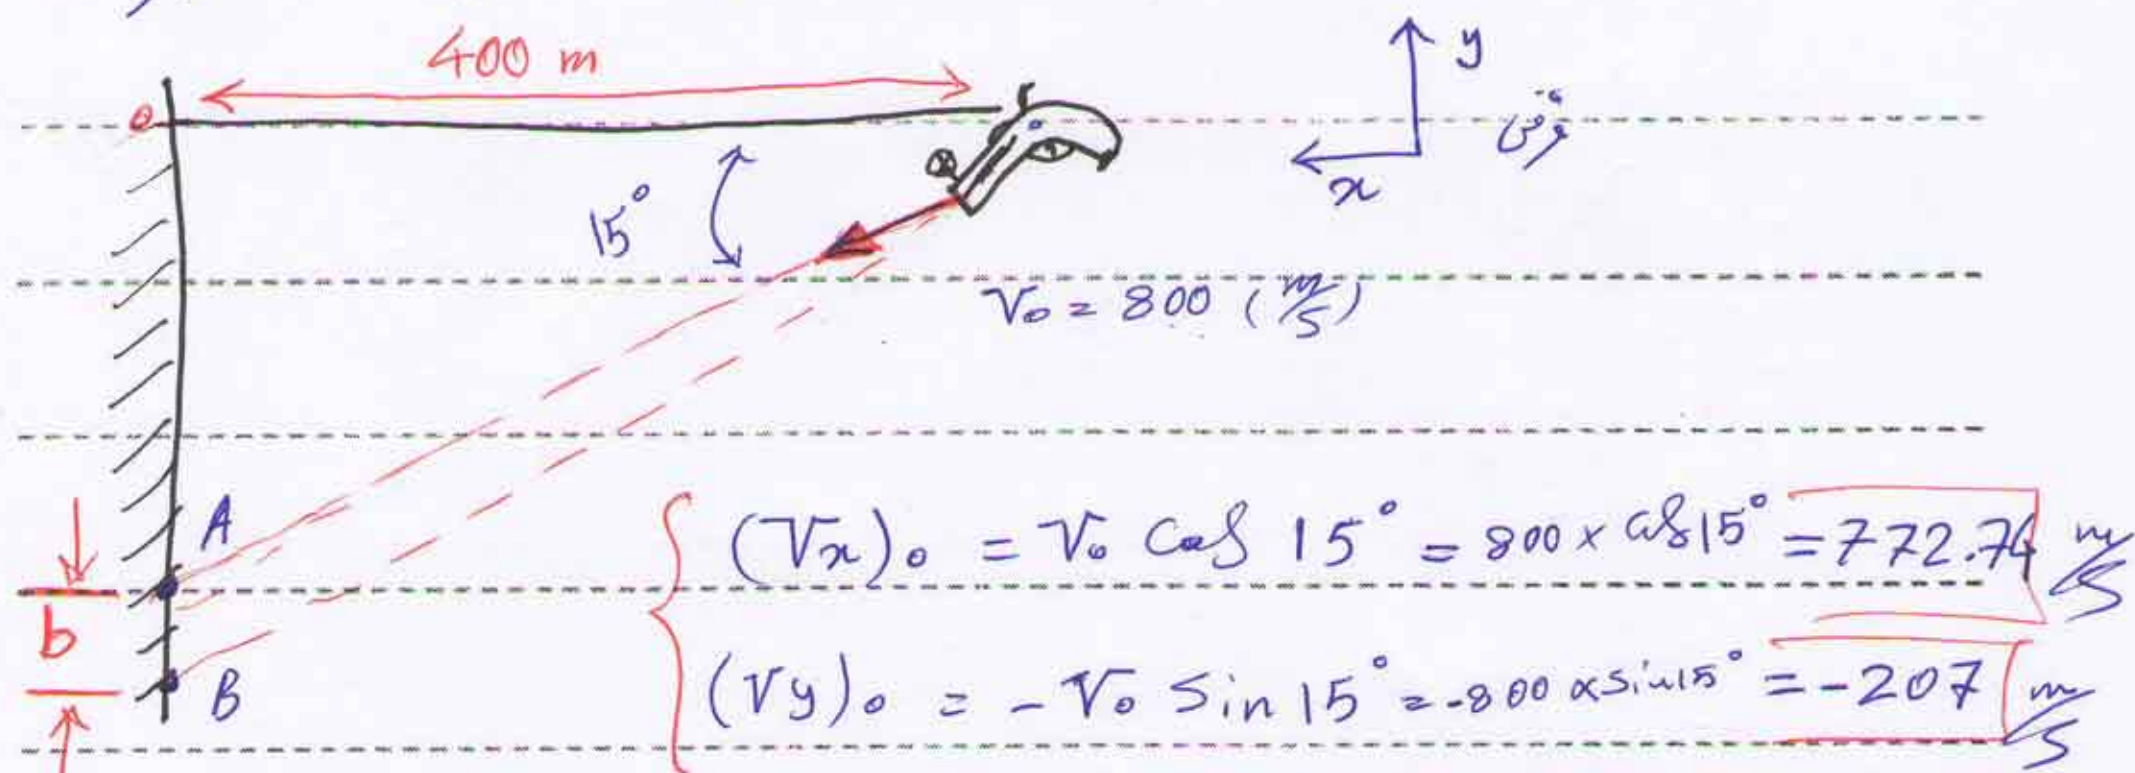 400 m
y
x
فرض
15°
V₀ = 800 (m/s)
A
b
B
(Vx)₀ = V₀ Cos 15° = 800 x cos 15° = 772.74 m/s
(Vy)₀ = - V₀ Sin 15° = -800 x sin 15° = -207 m/s